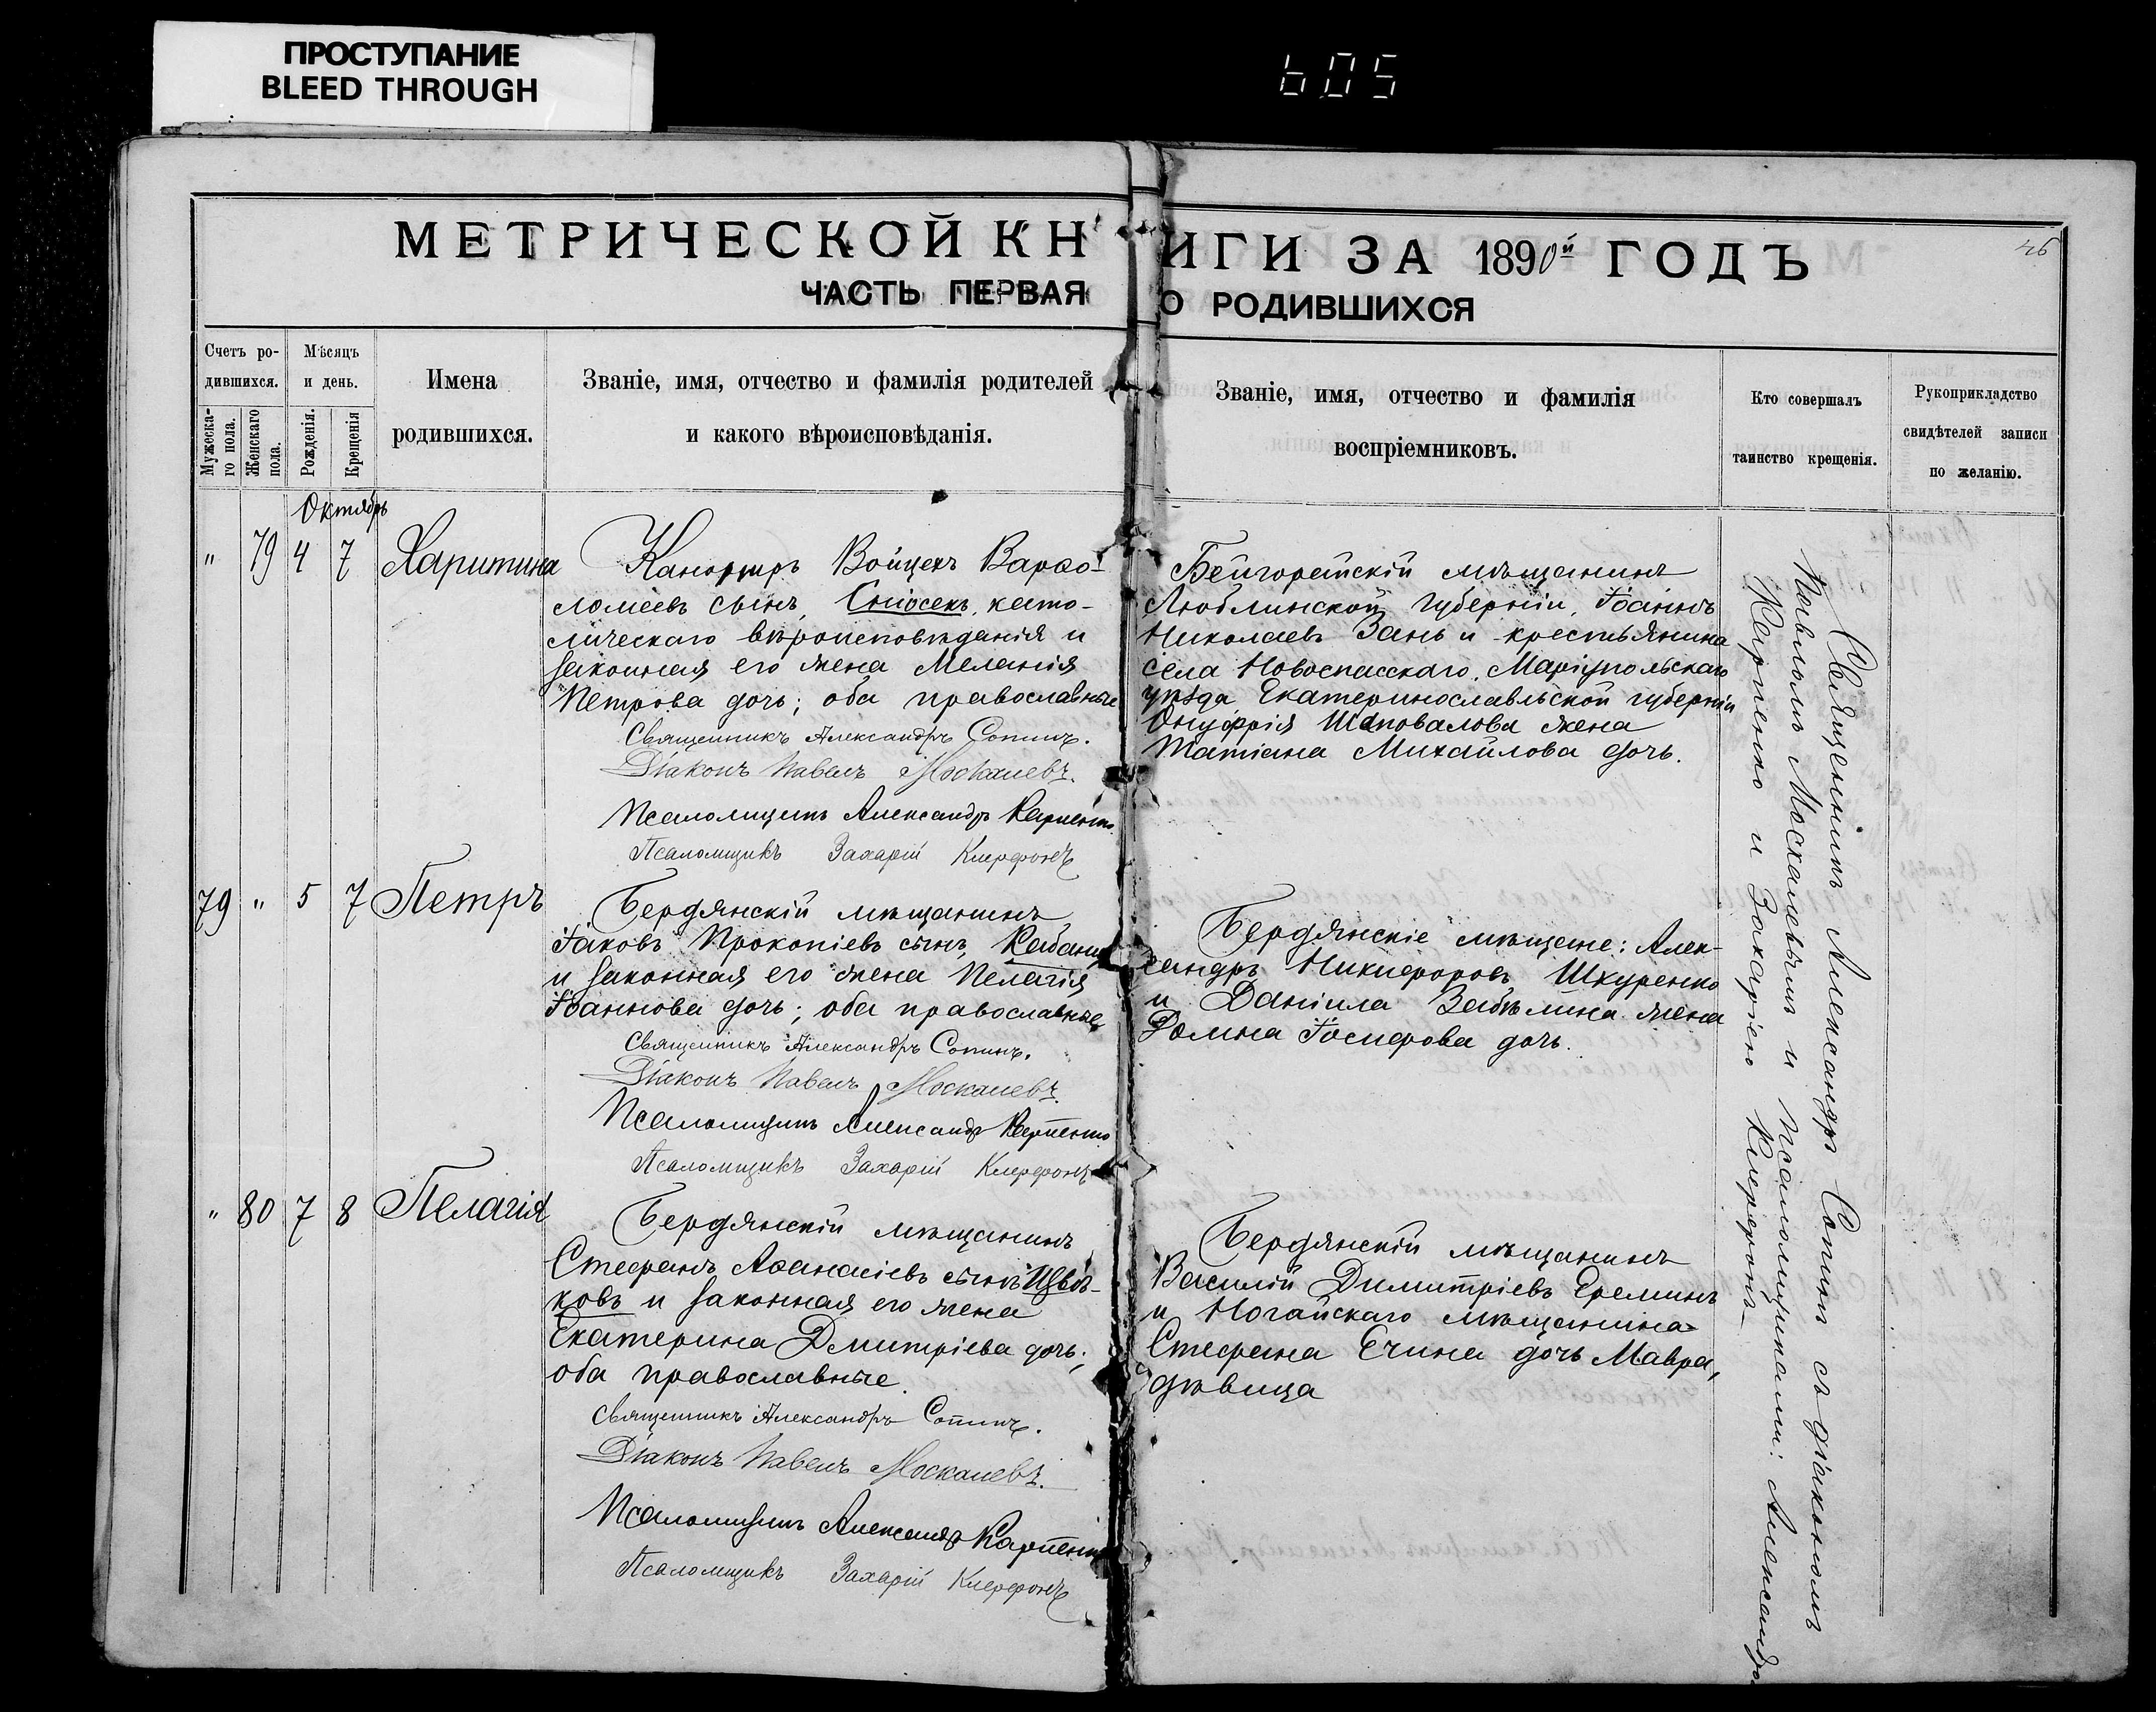 ПРОСТУПАНИЕ
BLEED THROUGH
605
МЕТРИЧЕСКОЙ КНИГИ ЗА 1890й ГОДЪ
46
ЧАСТЬ ПЕРВАЯ О РОДИВШИХСЯ
Счетъ ро-
дившихся.
Мужеска-
го пола.
Женскаго
пола.
Мѣсяцъ
и день.
Рожденія.
Крещенія
Имена
родившихся.
Званіе, имя, отчество и фамилія родителей
и какого вѣроисповѣданія.
Званіе, имя, отчество и фамилія
воспріемниковъ.
Кто совершалъ
таинство крещенія.
Рукоприкладство
свидѣтелей записи
по желанію.
Октябрь
" 79 4 7 Харитина
Войцехъ Варѳо-
ломеевъ сынъ, Сніосекъ, като-
лическаго вѣроисповѣданія и
законная его жена Меланія
Петрова дочь; оба православные
Священникъ Александръ Сопинъ.
Діаконъ Павелъ Москалевъ.
Псаломщикъ Александръ Карпенко
Псаломщикъ Захарій Клерфонъ
Бейгорейскій мѣщанинъ
Люблинской губерніи, Іоаннъ
Николаевъ Зань и крестьянина
села Новоспасскаго, Маріупольскаго
уѣзда Екатеринославльской губерніи
Онуфрія Шаповалова жена
Татіана Михайлова дочь.
79 " 5 7 Петръ
Бердянскій мѣщанинъ
Іаковъ Прокопіевъ сынъ, Кабанц
и законная его жена Пелагія
Іоаннова дочь; оба православные
Священникъ Александръ Сопинъ.
Діаконъ Павелъ Москалевъ.
Псаломщикъ Александръ Карпенко
Псаломщикъ Захарій Клерфонъ
Бердянскіе мѣщане: Алек-
сандръ Никифоровъ Шкуренко
и Даніила Забѣлина жена
Домна Іосифова дочь.
" 80 7 8 Пелагія
Бердянскій мѣщанинъ
Стефанъ Аѳанасіевъ сынъ Цвѣт-
ковъ и законная его жена
Екатерина Дмитріева дочь;
оба православные.
Священникъ Александръ Сопинъ.
Діаконъ Павелъ Москалевъ.
Псаломщикъ Александръ Карпенко
Псаломщикъ Захарій Клерфонъ
Бердянскій мѣщанинъ
Василій Димитріевъ Ереминъ
и Ногайскаго мѣщанина
Стефана Ечина дочь Мавра,
дѣвица
Священникъ Александръ Сопинъ съ діакономъ
Павломъ Москалевымъ и псаломщиками: Александромъ
Карпенко и Захаріею Клерфонъ